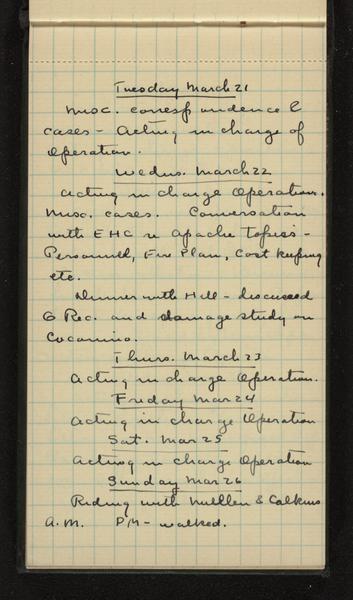 Tuesday March 21
Misc. correspondence &
cases - Acting in charge of
Operation.
Wednes. March 22
Acting in charge Operation.
Misc. cases. Conversation
with EHC re Apache Topics -
Personnel, Fire Plan, Cost keeping
etc.
Dinner with Hill - discussed
G Rec. and damage study on
Coconino.
Thurs. March 23
Acting in charge Operation.
Friday Mar 24
Acting in charge Operation
Sat. Mar 25
Acting in charge Operation
Sunday Mar 26
Riding with Mullen & Calkins
A.M. PM - walked.